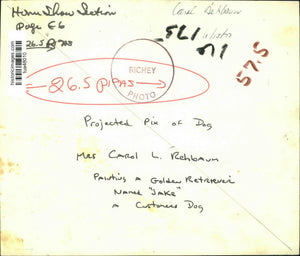 Home Show Section
Page E6
26.5
Carol Rehbaum
historicimages.com
RICHEY
PHOTO
57.5
26.5 PIPAS
Projected Pix of Dog
Mrs Carol L. Rehbaum
Painting a Golden Retriever
Named "Jake"
a Customers Dog